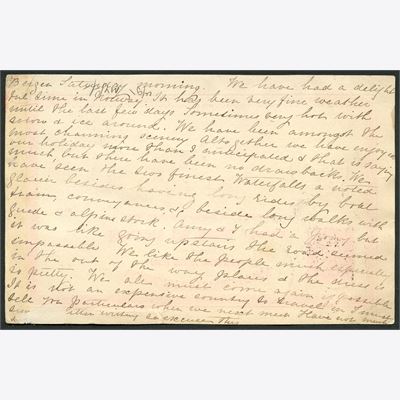 Bergen Saturday morning. We have had a delight
ful time in Norway. It has been very fine weather
until the last few days. Sometimes very hot with
snow & ice around. We have been amongst the
most charming scenery Altogether we have enjoyed
our holiday more than I anticipated & that is saying
much but there have been no drawbacks. We
have seen the two finest Waterfalls a noted
glacier besides having long rides by boat
train, conveyances, & beside long walks with
guide & alpine stock. Amy & I had a but
it was like going upstairs the road seemed
impassable We like the people much especially
in the out of the way places & the dress is
so pretty. We also must come again if possible
It is not an expensive country to travel in I must
tell you particulars when we next meet Have not much
letter writing so excuse this